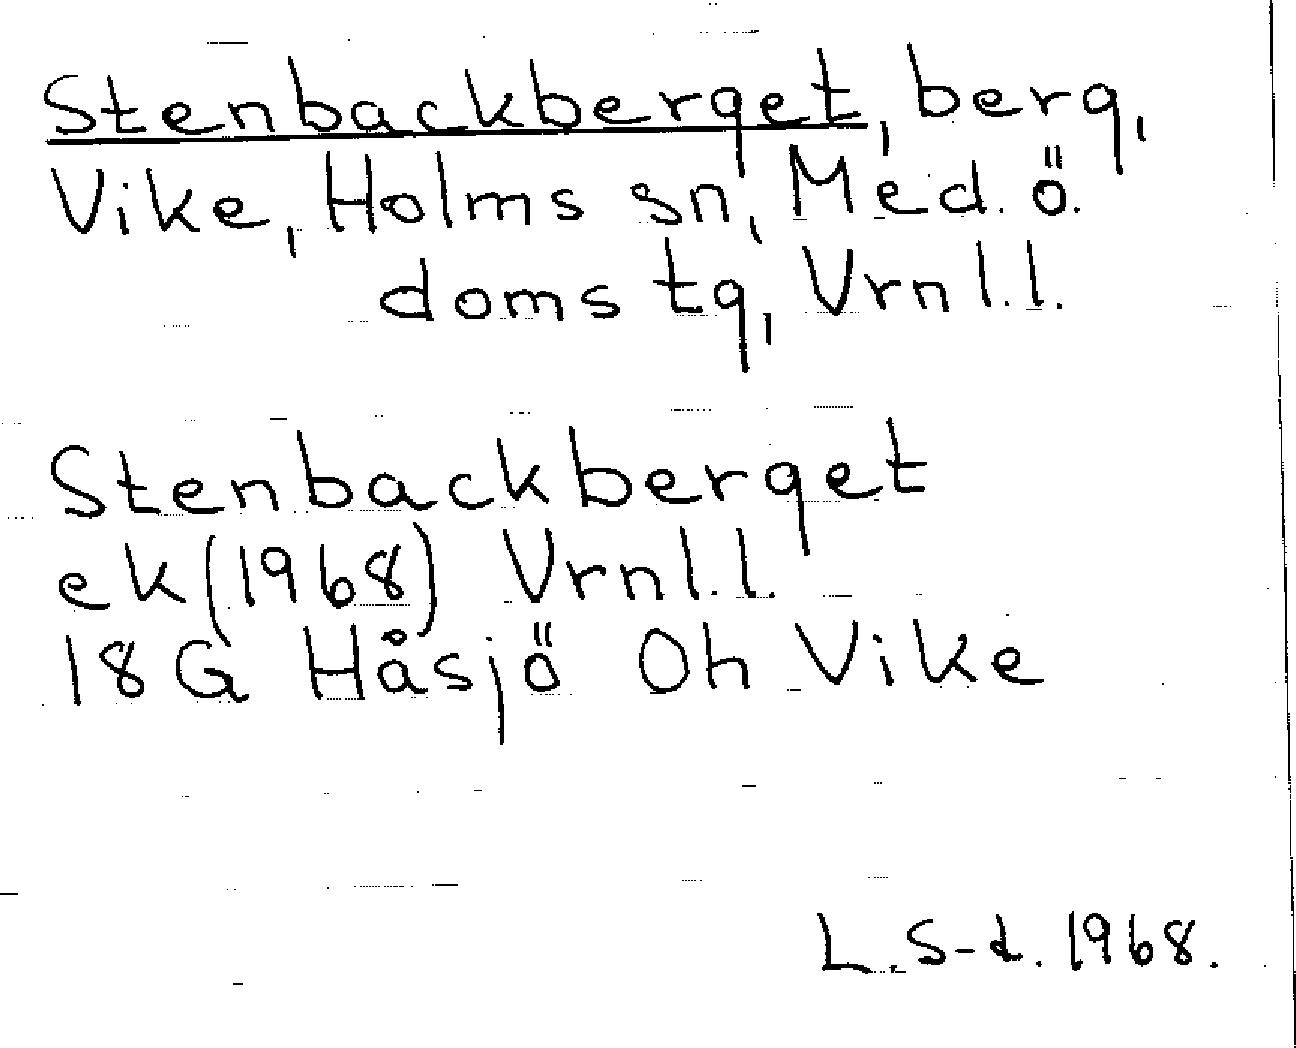 Stenbackberget, berg,
Vike, Holms sn, Med. ö.
doms tg, Vrnl.l.
Stenbackberget
ek (1968) Vrnl.l.
18G Håsjö Oh Vike
L.S-d. 1968.